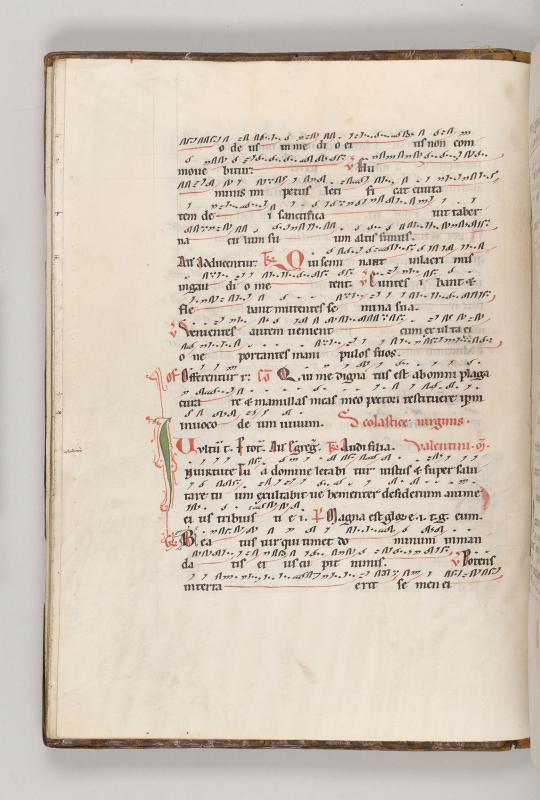 o de us in me di o ei us non com
moue bitur. ℣ Flu
minis im petus leti fi cat ciuita
tem de i sanctifica uit taber
na cu lum su um altis simus.
All Adducentur. Tr Qui semi nant in lacri mis
in gau di o me tent. ℣ Euntes i bant &
fle bant mittentes se mi na sua.
℣ Venientes autem venient cum ex ul ta ti
o ne portantes mani pulos suos.
Of Offerentur r: Co Qui me digna tus est ab omni plaga
cura re & mamillas meas meo pectori restituere ipm
inuoco de um uiuum. Scolastice virginis.
Vultū t. Audi filia. Valentini m̄.
In uirtute tua domine letabi tur iustus & super salu
tare tu um exultabit ue hementer desiderium anime
ei us tribuis ti e i. Ps Magna est glor e. i. t. g. eum.
Be a tus uir qui timet do minum in man
da tis ei us cu pit nimis. ℣ Potens
in terra erit se men ei